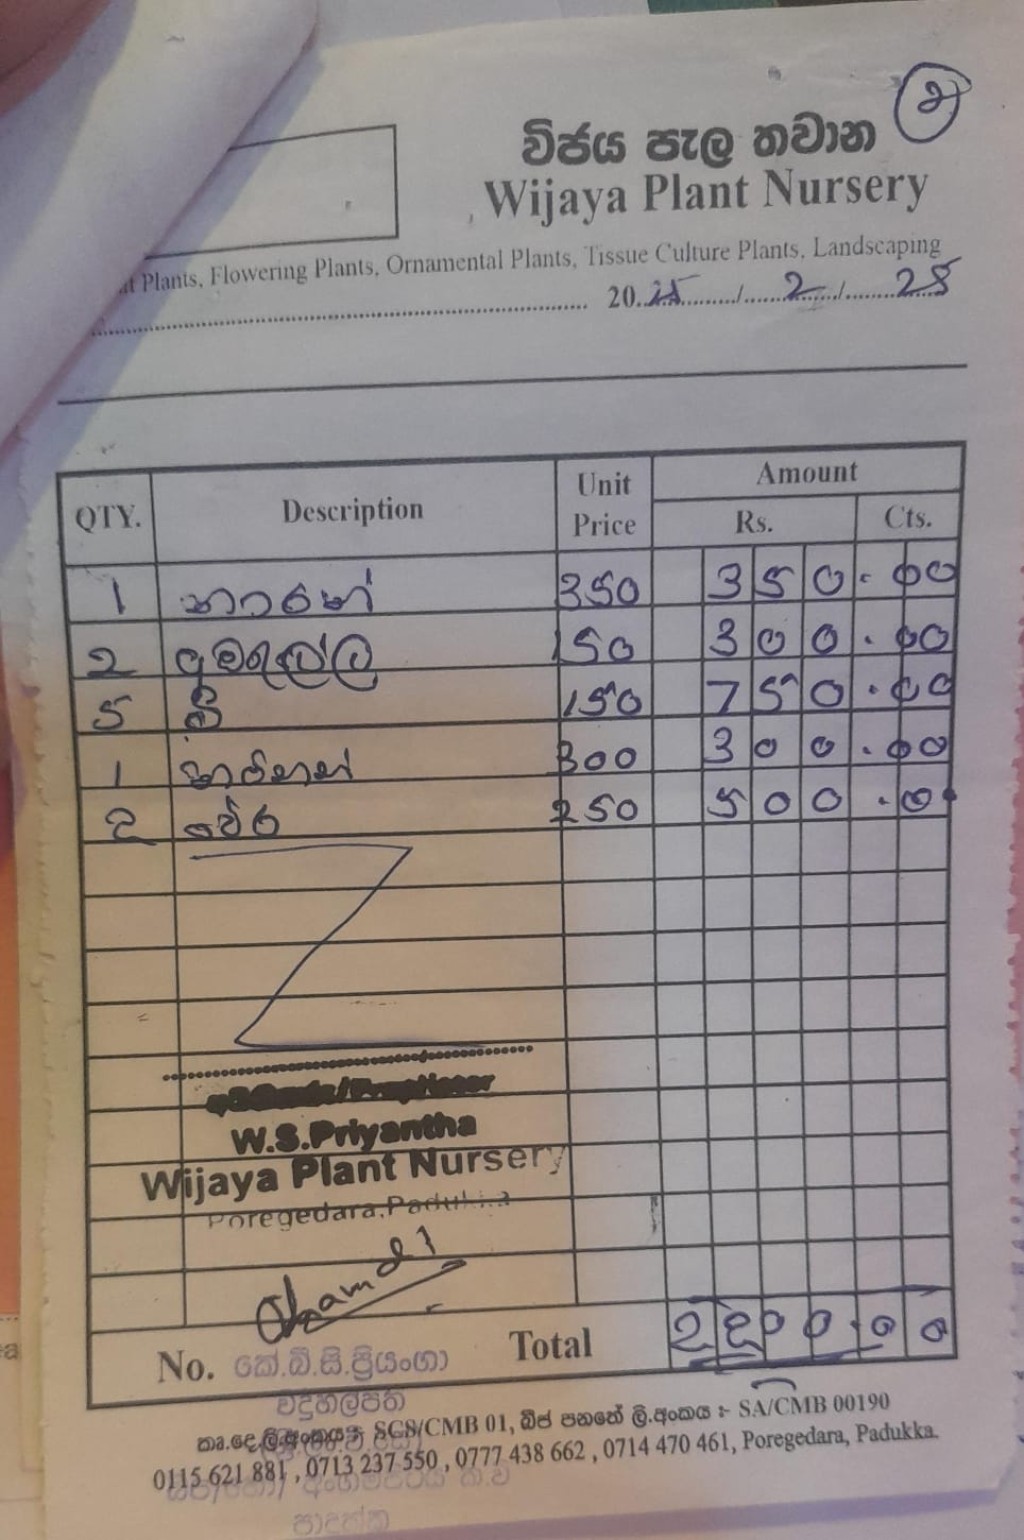 2
විජය පැල තවාන
Wijaya Plant Nursery
Plants, Flowering Plants, Ornamental Plants, Tissue Culture Plants, Landscaping
2025/2/28
QTY. Description Unit Price Amount
Rs. Cts.
1 නාරන් 350 350.00
2 150 300.00
5 150 750.00
1 300 300.00
2 පේර 250 500.00
W.S.Priyantha
Wijaya Plant Nursery
Poregedara, Padukka
Total 2200.00
No. කේ.බී.සී.ප්‍රියංගා
කෘ.දෙ.ලි.අංකය :- SGS/CMB 01, බීජ පනතේ ලි.අංකය :- SA/CMB 00190
0115 621 881, 0713 237 550, 0777 438 662, 0714 470 461, Poregedara, Padukka.
පාදුක්ක